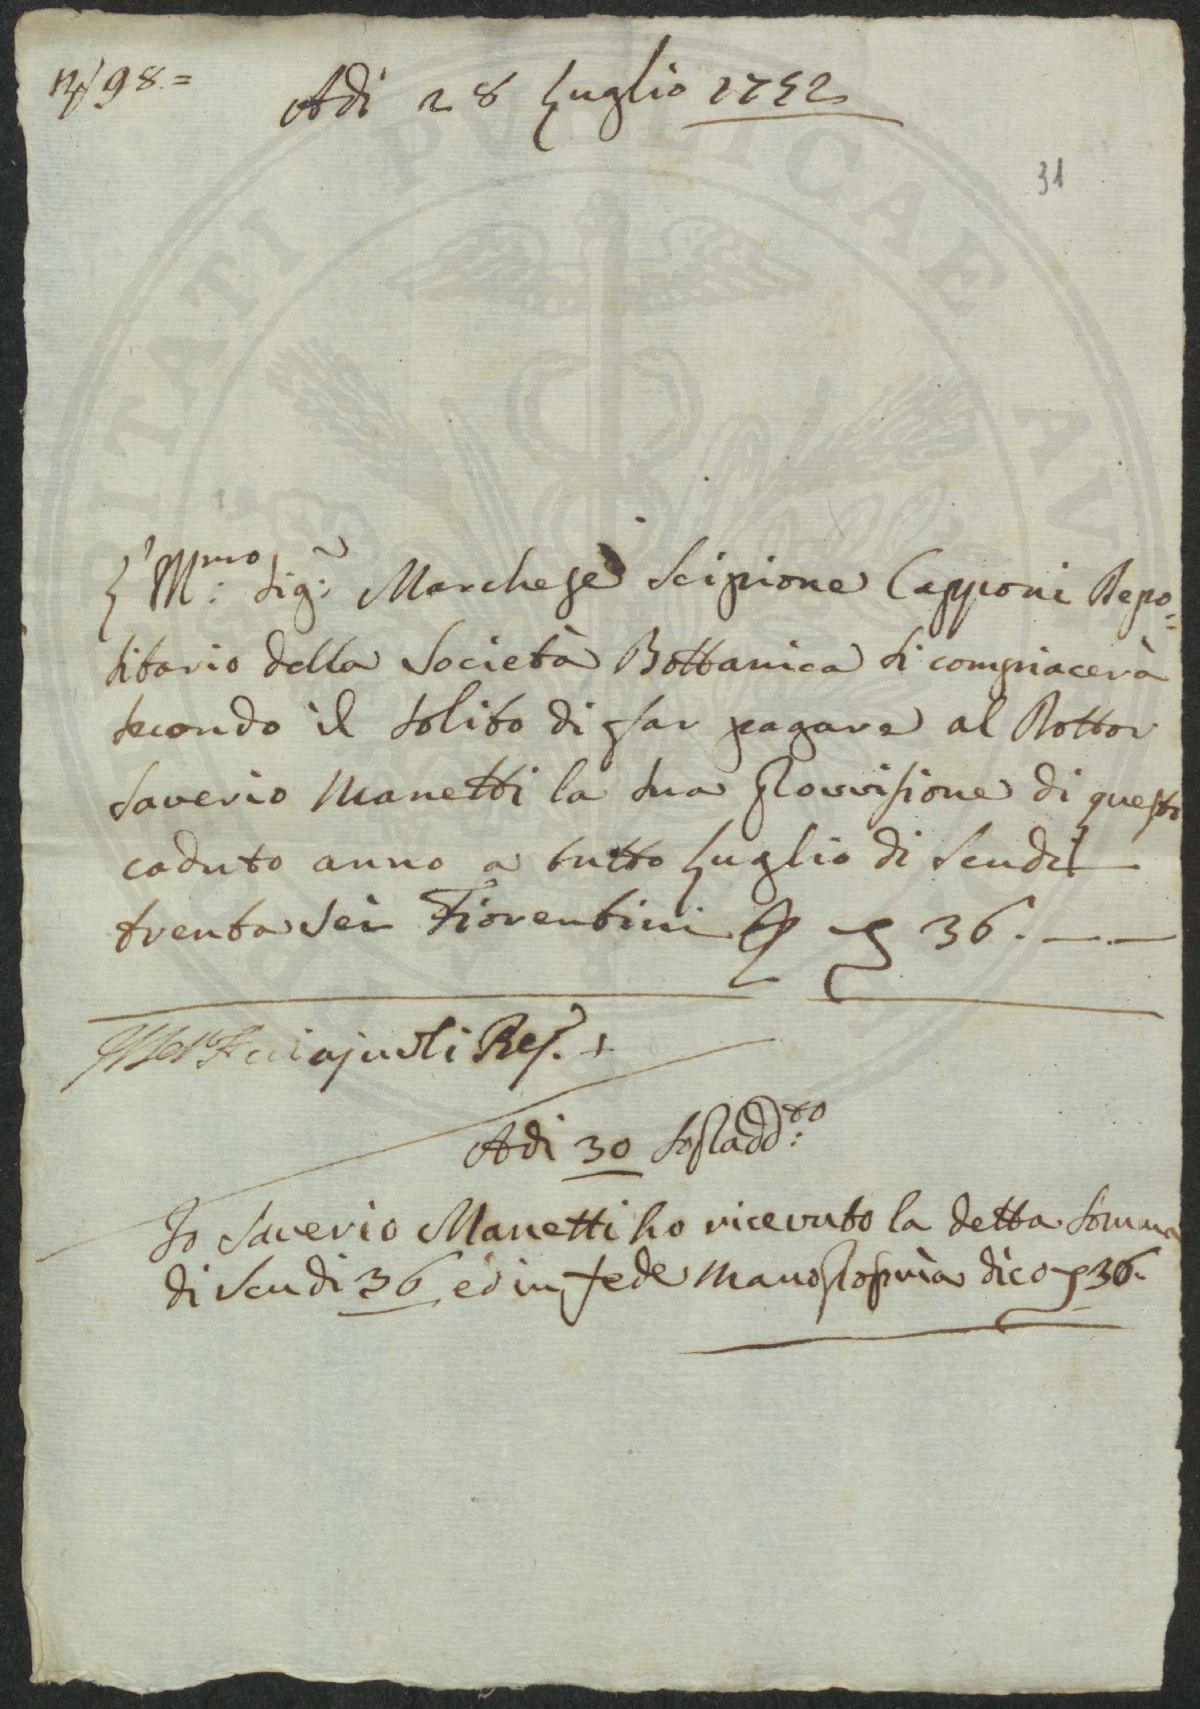 98.=
Adi 28 Luglio 1752
31
L'Ill.mo Sig.r Marchese Scipione Capponi Depo=
sitario della Società Bottanica si compiacerà
secondo il solito di far pagare al Dottor
Saverio Manetti la sua Provvisione di questo
caduto anno a tutto Luglio di Scudi
trenta sei Fiorentini 36.
Acciajuoli
Adi 30 Sopradd.to
Io Saverio Manetti ho ricevuto la detta Somma
di Scudi 36 ed in fede mano propria dico 36.
PVBLICAE